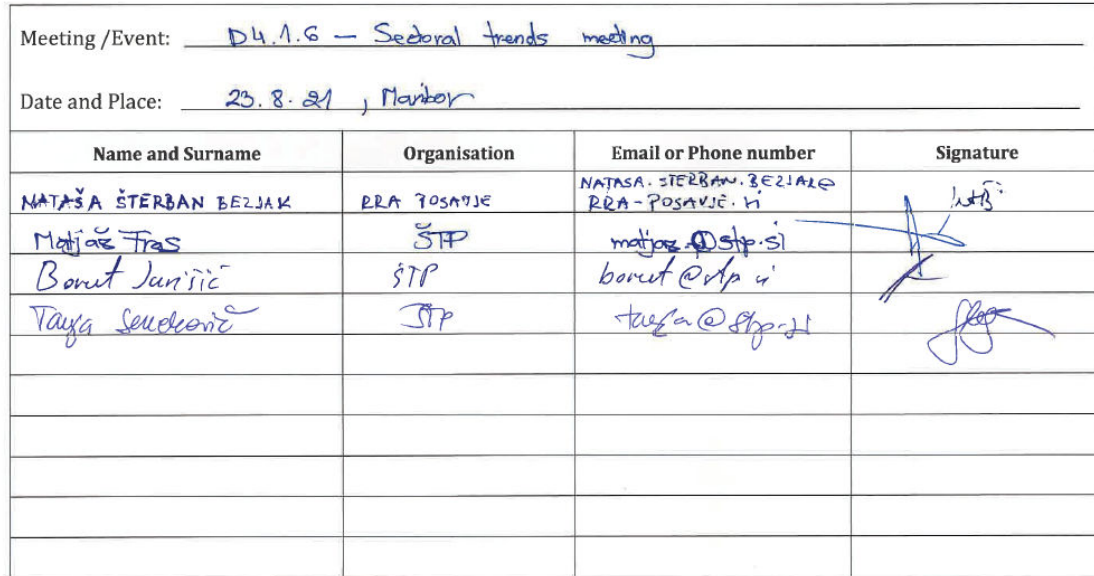 Meeting /Event: D4.1.6 – Sectoral trends meeting
Date and Place: 23.8.21, Maribor
Name and Surname Organisation Email or Phone number Signature
NATAŠA ŠTERBAN BEZJAK RRA POSAVJE NATASA.STERBAN.BEZJAK@
RRA-POSAVJE.si
Matjaž Fras ŠTP matjaz@stp.si
Borut Jurišič ŠTP borut@stp.si
ŠTP